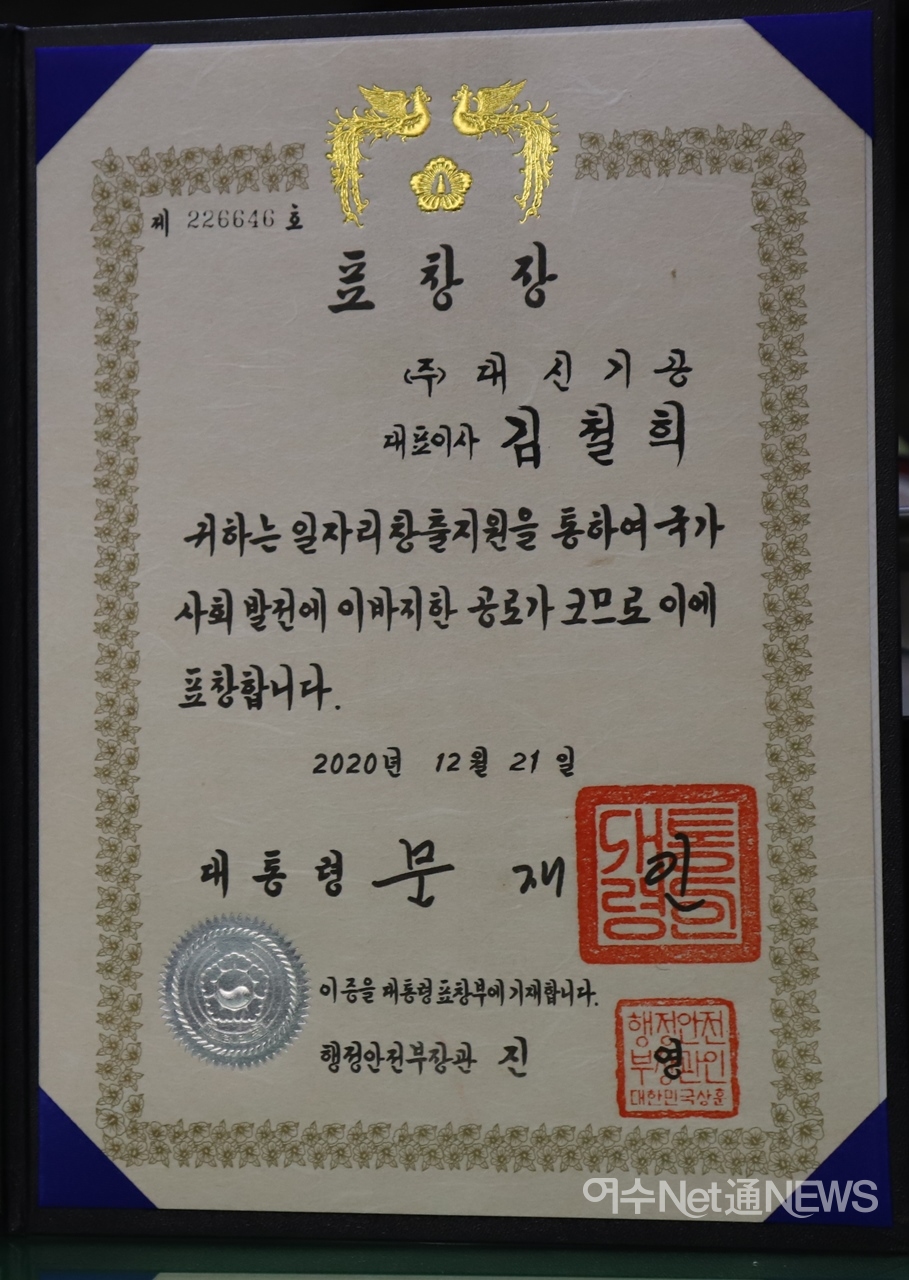 제 226646 호
표창장
(주) 대신기공
대표이사 김철희
귀하는 일자리창출지원을 통하여 국가
사회 발전에 이바지한 공로가 크므로 이에
표창합니다.
2020년 12월 21일
대통령 문재인
대통령의인
이 증을 대통령표창부에 기재합니다.
행정안전부장관 진영
행정안전
부장관인
대한민국상훈
여수Net通NEWS